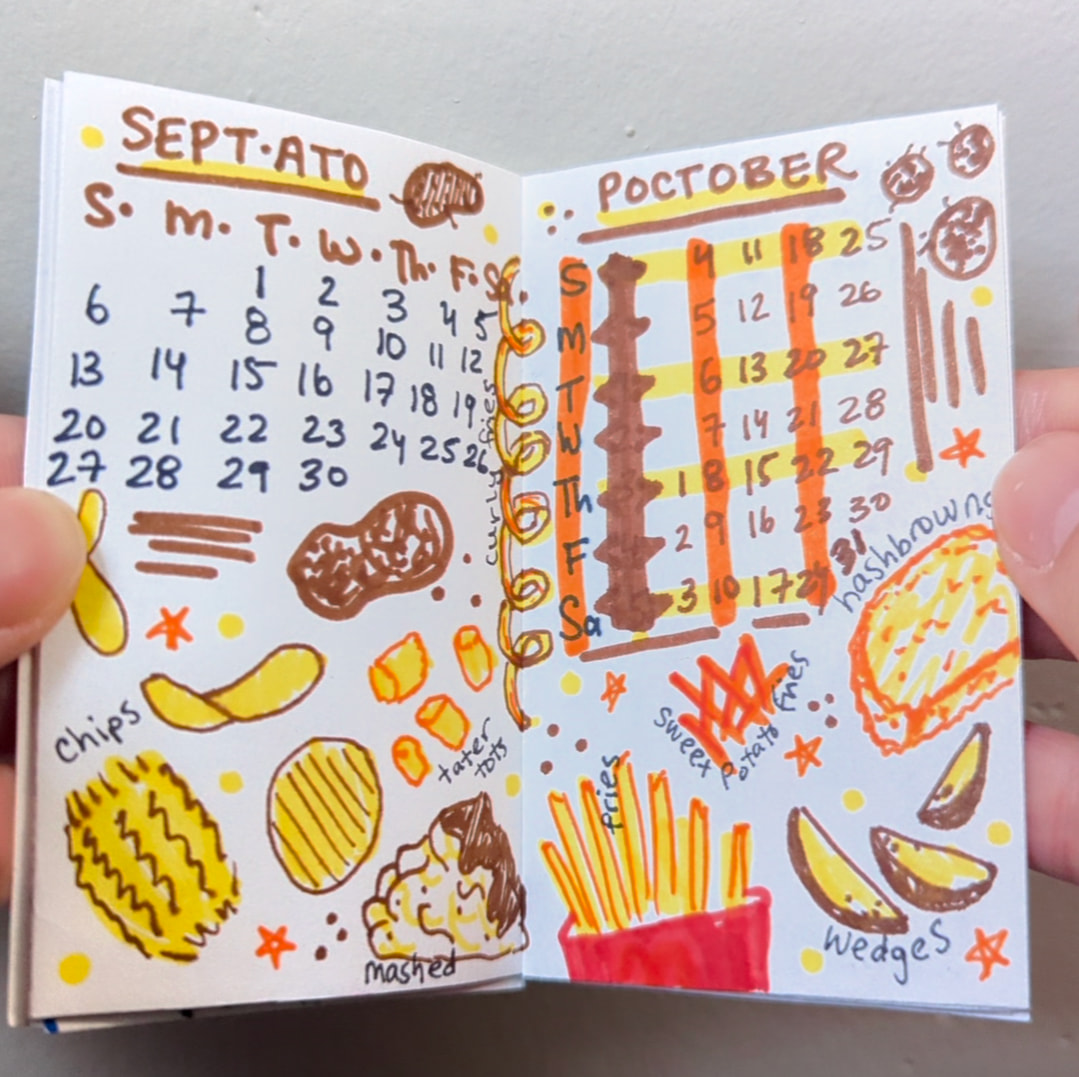 SEPT·ATO
S· M· T· W· Th· F· Sa.
1 2 3 4 5
6 7 8 9 10 11 12
13 14 15 16 17 18 19
20 21 22 23 24 25 26
27 28 29 30
curly fries
chips
tater
tots
mashed
POCTOBER
S 4 11 18 25
M 5 12 19 26
T 6 13 20 27
W 7 14 21 28
Th 1 8 15 22 29
F 2 9 16 23 30
Sa 3 10 17 24 31
hashbrowns
sweet potato fries
fries
wedges